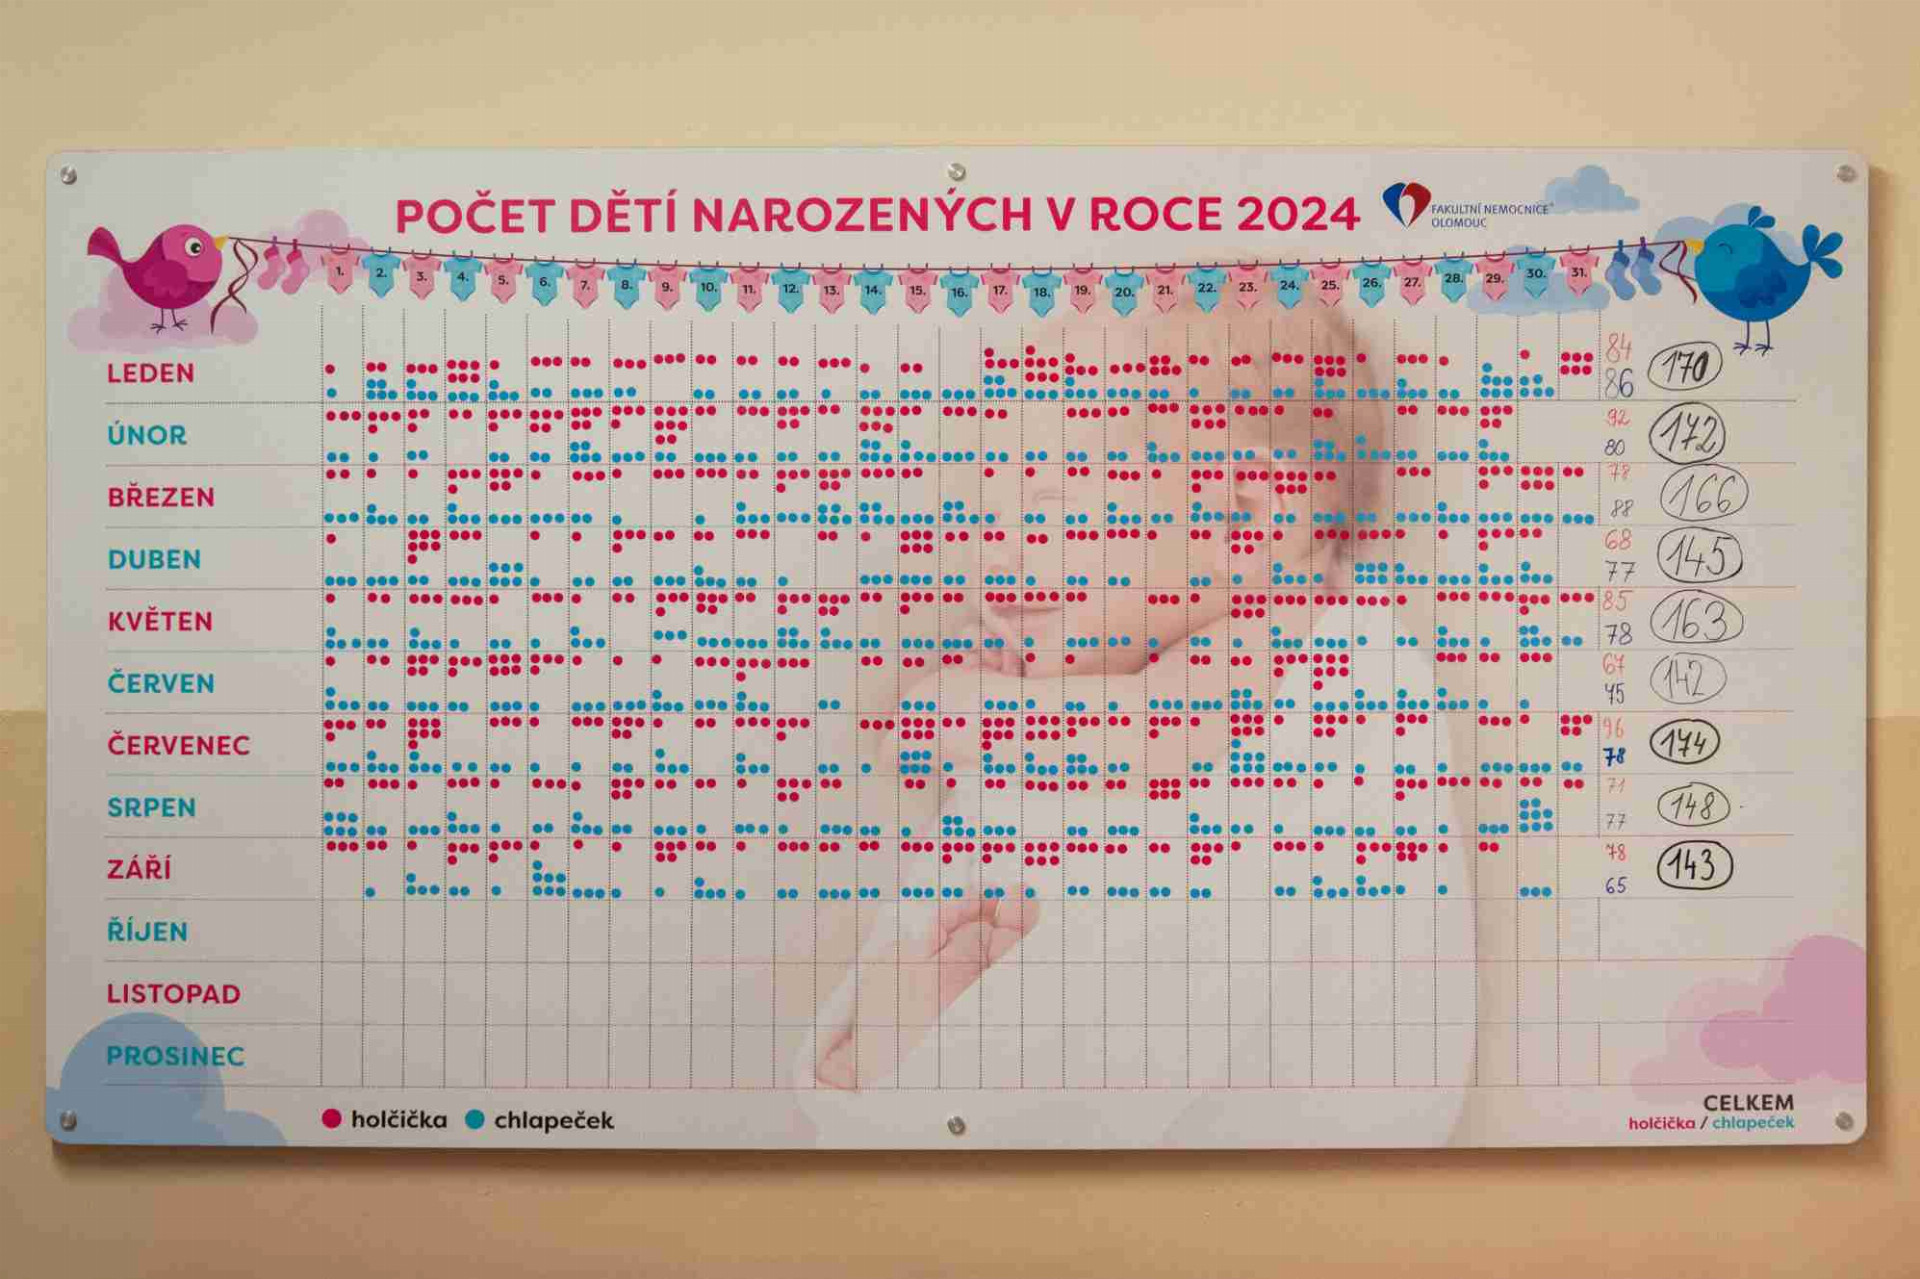 POČET DĚTÍ NAROZENÝCH V ROCE 2024
FAKULTNÍ NEMOCNICE
OLOMOUC
1. 2. 3. 4. 5. 6. 7. 8. 9. 10. 11. 12. 13. 14. 15. 16. 17. 18. 19. 20. 21. 22. 23. 24. 25. 26. 27. 28. 29. 30. 31.
LEDEN 84 86 170
ÚNOR 92 80 172
BŘEZEN 78 88 166
DUBEN 68 77 145
KVĚTEN 85 78 163
ČERVEN 67 75 142
ČERVENEC 96 78 174
SRPEN 71 77 148
ZÁŘÍ 78 65 143
ŘÍJEN
LISTOPAD
PROSINEC
holčička chlapeček
CELKEM
holčička / chlapeček